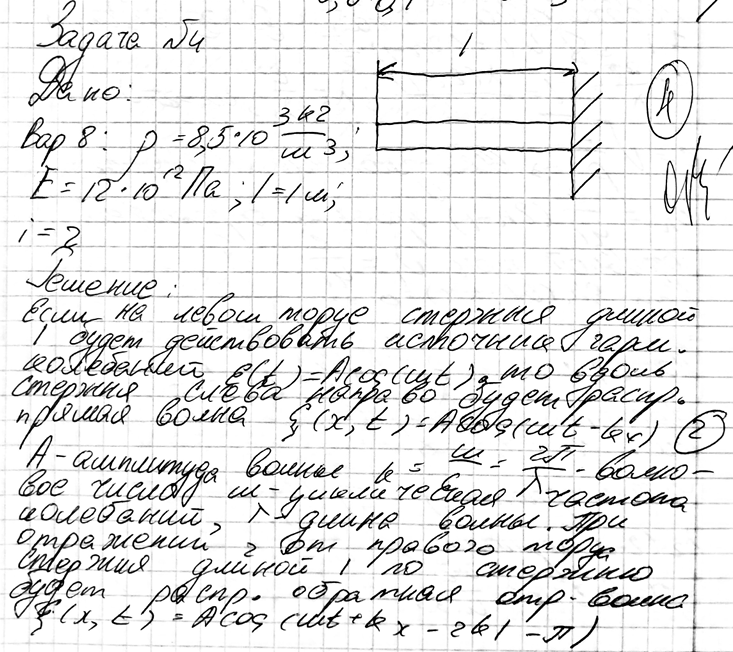 Задача №4
l
Дано:
4
Вар 8: ρ = 8,5·10³ кг/м³;
E = 12·10¹² Па; l = 1 м;
i = 2
Решение:
Если на левом торце стержня длиной
l будет действовать источник гарм.
колебаний ξ(t) = A cos(ωt), то вдоль
стержня слева направо будет распр.
прямая волна ξ(x, t) = A cos(ωt - kx) 2
A - амплитуда волны k = ω/ = 2π/λ - волно-
вое число, ω - циклическая частота
колебаний, λ - длина волны. При
отражений, от правого торца
стержня длиной l по стержню
будет распр. обратная отр. волна
ξ(x, t) = A cos(ωt + kx - 2kl - π)